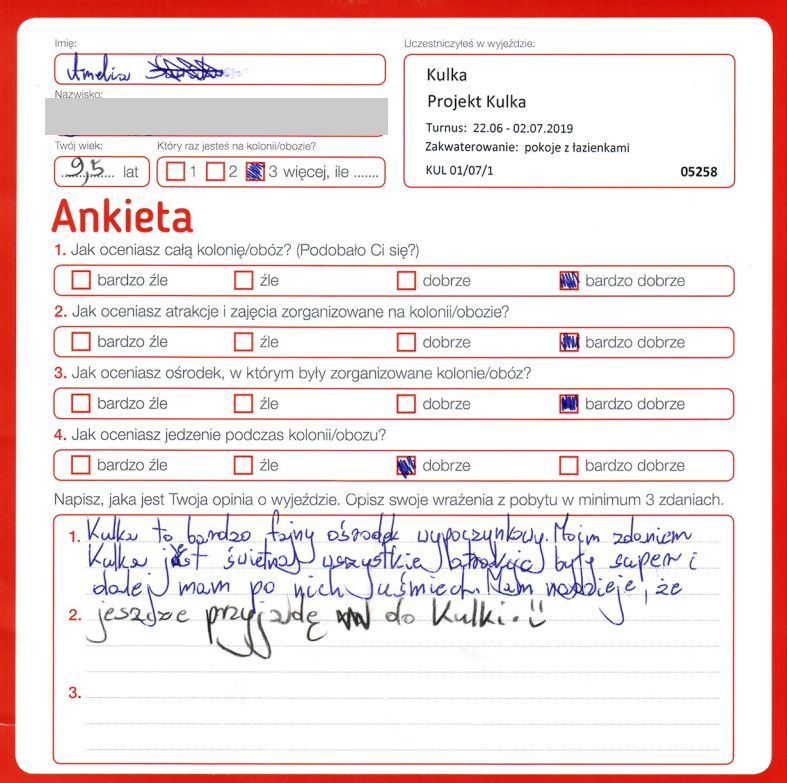 Imię:
Uczestniczyłeś w wyjeździe:
Amelia
Kulka
Projekt Kulka
Nazwisko:
Turnus: 22.06 - 02.07.2019
Zakwaterowanie: pokoje z łazienkami
KUL 01/07/1 05258
Twój wiek:
Który raz jesteś na kolonii/obozie?
9,5 lat
1 2 3 więcej, ile .......
Ankieta
1. Jak oceniasz całą kolonię/obóz? (Podobało Ci się?)
bardzo źle źle dobrze bardzo dobrze
2. Jak oceniasz atrakcje i zajęcia zorganizowane na kolonii/obozie?
bardzo źle źle dobrze bardzo dobrze
3. Jak oceniasz ośrodek, w którym były zorganizowane kolonie/obóz?
bardzo źle źle dobrze bardzo dobrze
4. Jak oceniasz jedzenie podczas kolonii/obozu?
bardzo źle źle dobrze bardzo dobrze
Napisz, jaka jest Twoja opinia o wyjeździe. Opisz swoje wrażenia z pobytu w minimum 3 zdaniach.
1. Kulka to bardzo fajny ośrodek wypoczynkowy. Moim zdaniem
Kulka jest świetna wszystkie atrakcje były super i
dalej mam po nich uśmiech. Mam nadzieje, że
2. jeszcze przyjadę do Kulki. :)
3.